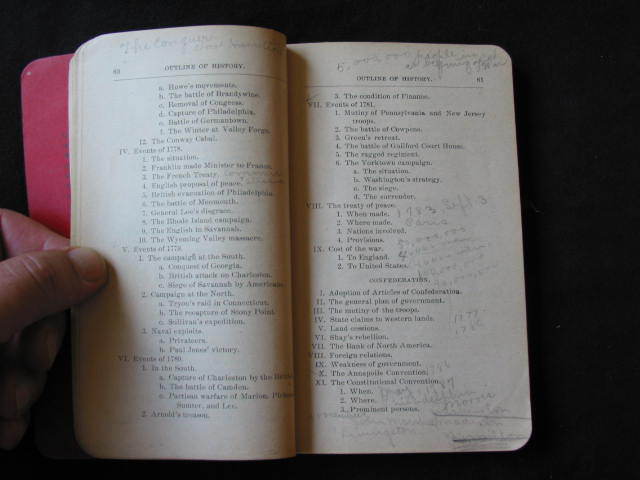 The Conquer
60
OUTLINE OF HISTORY.
a. Howe's movements.
b. The battle of Brandywine.
c. Removal of Congress.
d. Capture of Philadelphia.
e. Battle of Germantown.
f. The Winter at Valley Forge.
12. The Conway Cabal.
IV. Events of 1778.
1. The situation.
2. Franklin made Minister to France.
3. The French Treaty.
4. English proposal of peace.
5. British evacuation of Philadelphia.
6. The battle of Monmouth.
7. General Lee's disgrace.
8. The Rhode Island campaign.
9. The English in Savannah.
10. The Wyoming Valley massacre.
V. Events of 1779.
1. The campaign at the South.
a. Conquest of Georgia.
b. British attack on Charleston.
c. Siege of Savannah by Americans.
2. Campaign at the North.
a. Tryon's raid in Connecticut.
b. The recapture of Stony Point.
c. Sullivan's expedition.
3. Naval exploits.
a. Privateers.
b. Paul Jones' victory.
VI. Events of 1780.
1. In the South.
a. Capture of Charleston by the
b. The battle of Camden.
c. Partisan warfare of Marion, Pickens
Sumter, and Lee.
2. Arnold's treason.
5,000,000 people
at beginning of War
OUTLINE OF HISTORY.
61
3. The condition of Finance.
VII. Events of 1781.
1. Mutiny of Pennsylvania and New Jersey
troops.
2. The battle of Cowpens.
3. Green's retreat.
4. The battle of Guilford Court House.
5. The ragged regiment.
6. The Yorktown campaign.
a. The situation.
b. Washington's strategy.
c. The siege.
d. The surrender.
VIII. The treaty of peace.
1. When made. 1783, Sept. 3
2. Where made. Paris
3. Nations involved.
4. Provisions.
IX. Cost of the war.
1. To England.
2. To United States.
CONFEDERATION.
I. Adoption of Articles of Confederation.
II. The general plan of government.
III. The mutiny of the troops.
IV. State claims to western lands.
V. Land cessions.
VI. Shay's rebellion.
VII. The Bank of North America.
VIII. Foreign relations.
IX. Weakness of government.
X. The Annapolis Convention.
XI. The Constitutional Convention.
1. When.
2. Where.
3. Prominent persons.